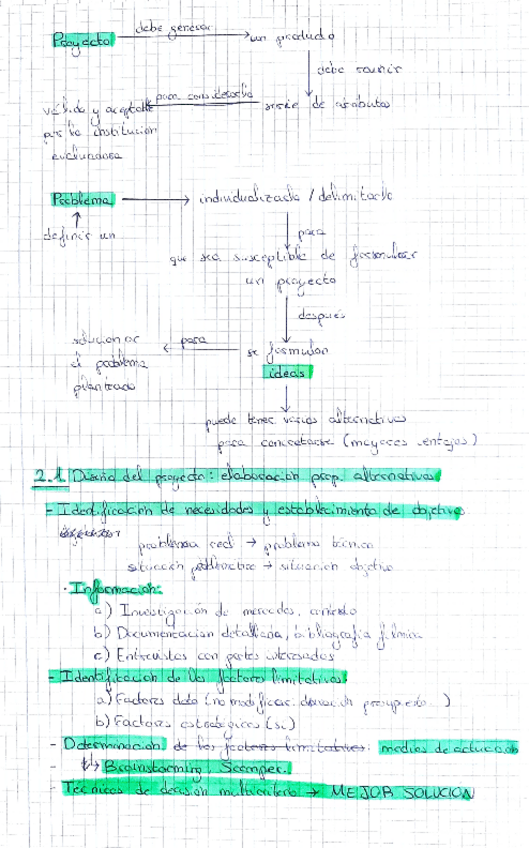 Proyecto debe generar un producto
debe reunir
serie de atributos
para considerarla
válida y aceptable
por la institución
evaluadora
Problema individualizado / delimitado
definir un
para
que sea susceptible de formular
un proyecto
después
se formulan
ideas
para
solucionar
el problema
planteado
puede tener varias alternativas
para concretarse (mayores ventajas)
2.1 Diseño del proyecto: elaboración prop. alternativas
- Identificación de necesidades y establecimiento de objetivos
problema real → problema técnico
situación problemática → situación objetivo
· Información:
a) Investigación de mercados, contexto
b) Documentación detallada, bibliografía
c) Entrevistas con partes interesadas
- Identificación de los factores limitativos:
a) Factores dato (no modificar: duración, presupuesto...)
b) Factores estratégicos (sí)
- Determinación de los factores limitativos: medios de actuación
↳ Brainstorming, Scamper.
- Técnicas de decisión multicriterio → MEJOR SOLUCIÓN